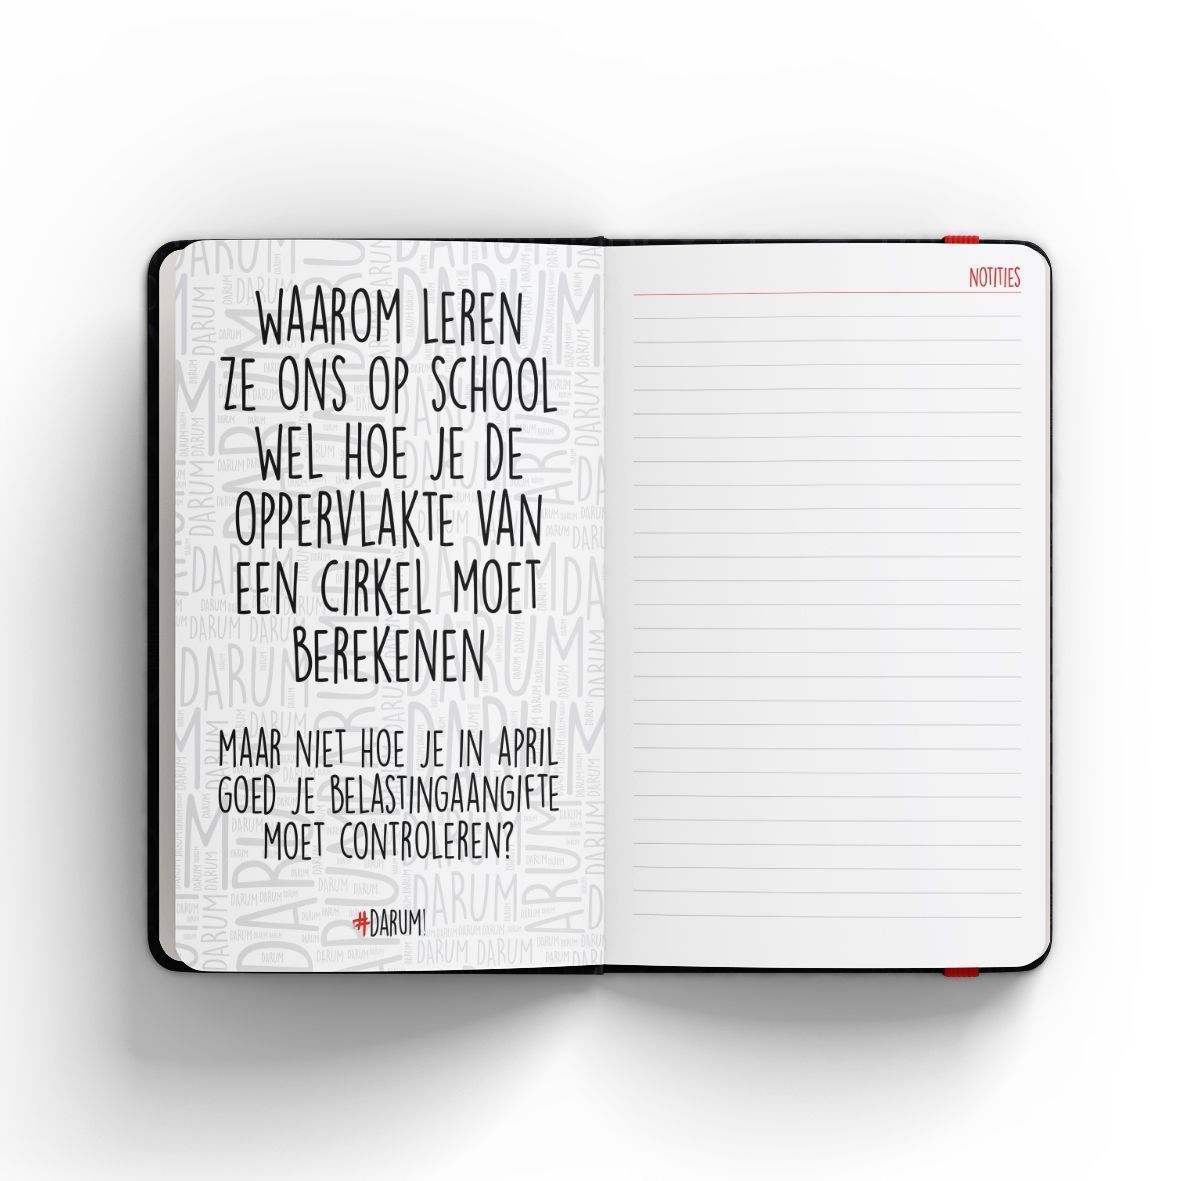 WAAROM LEREN
ZE ONS OP SCHOOL
WEL HOE JE DE
OPPERVLAKTE VAN
EEN CIRKEL MOET
BEREKENEN
MAAR NIET HOE JE IN APRIL
GOED JE BELASTINGAANGIFTE
MOET CONTROLEREN?
#DARUM!
NOTITIES